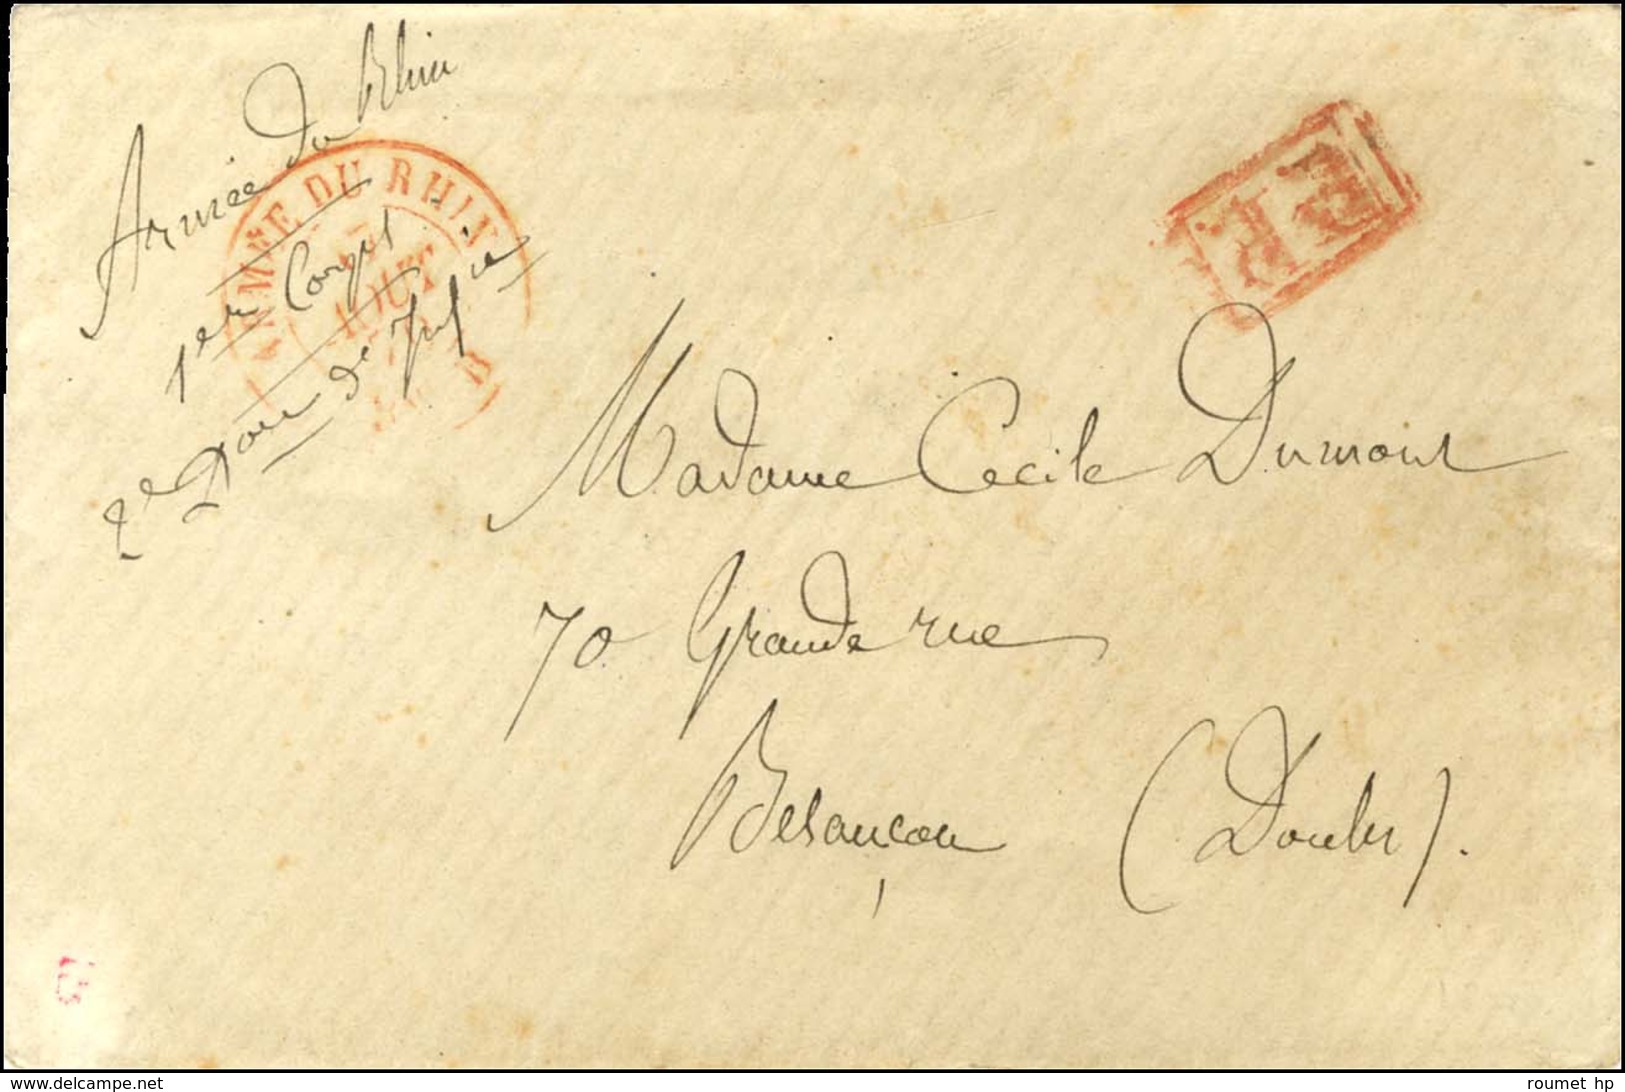 Armée du Rhin
1er Corps
2e Don d'Infie
ARMÉE DU RHIN
AOUT
B
PP
Madame Cecile Dumont
70 Grande rue
Besançon (Doubs).
www.delcampe.net
roumet hp